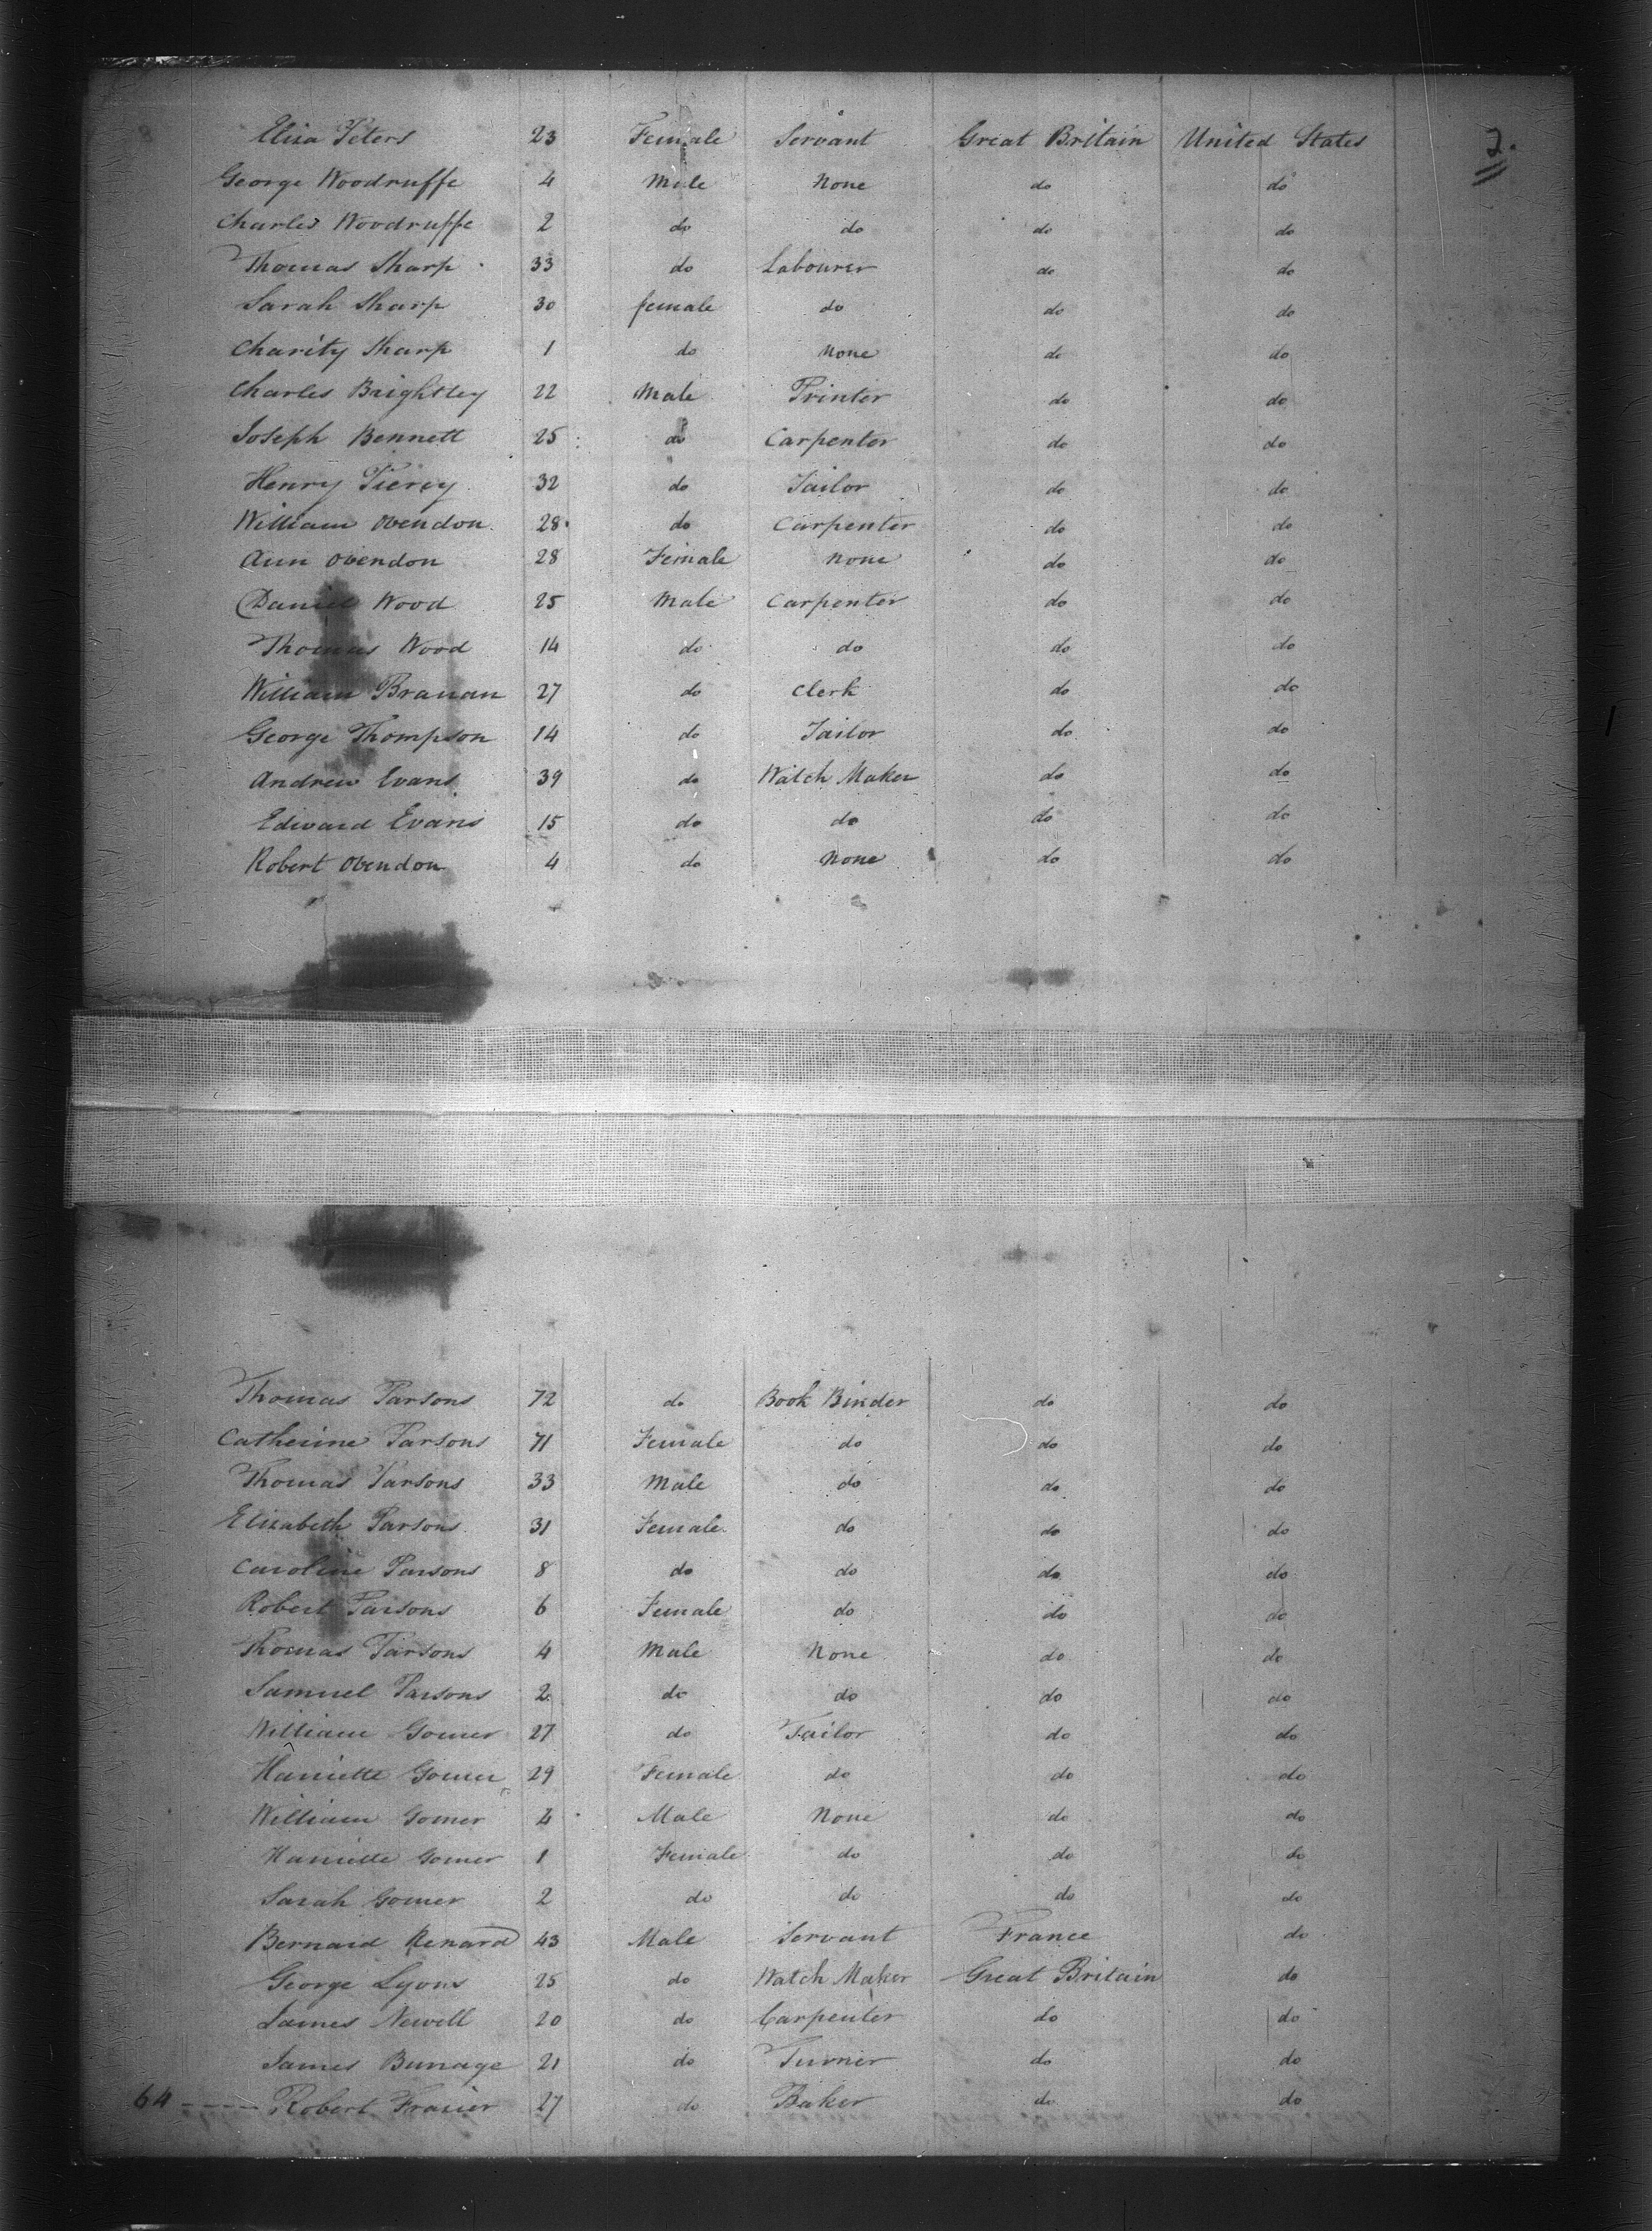 2.
Eliza Peters 23 Female Servant Great Britain United States
George Woodruffe 4 Male None do do
Charles Woodruffe 2 do do do do
Thomas Sharp 33 do Labourer do do
Sarah Sharp 30 female do do do
Charity Sharp 1 do None do do
Charles Brightley 22 Male Printer do do
Joseph Bennett 25 do Carpenter do do
Henry Piercy 32 do Tailor do do
William Ovendon 28 do Carpenter do do
Ann Ovendon 28 Female None do do
Daniel Wood 25 Male Carpenter do do
Thomas Wood 14 do do do do
William Branan 27 do Clerk do do
George Thompson 14 do Tailor do do
Andrew Evans 39 do Watch Maker do do
Edward Evans 15 do do do do
Robert Ovendon 4 do None do do
Thomas Parsons 72 do Book Binder do do
Catherine Parsons 71 Female do do do
Thomas Parsons 33 Male do do do
Elizabeth Parsons 31 Female do do do
Caroline Parsons 8 do do do do
Robert Parsons 6 Female do do do
Thomas Parsons 4 Male None do do
Samuel Parsons 2 do do do do
William Gomer 27 do Tailor do do
Harriette Gomer 29 Female do do do
William Gomer 4 Male None do do
Harriette Gomer 1 Female do do do
Sarah Gomer 2 do do do do
Bernard Renard 43 Male Servant France do
George Lyons 25 do Watch Maker Great Britain do
James Newell 20 do Carpenter do do
James Bunage 21 do Turner do do
64 ---- Robert Frasier 27 do Baker do do